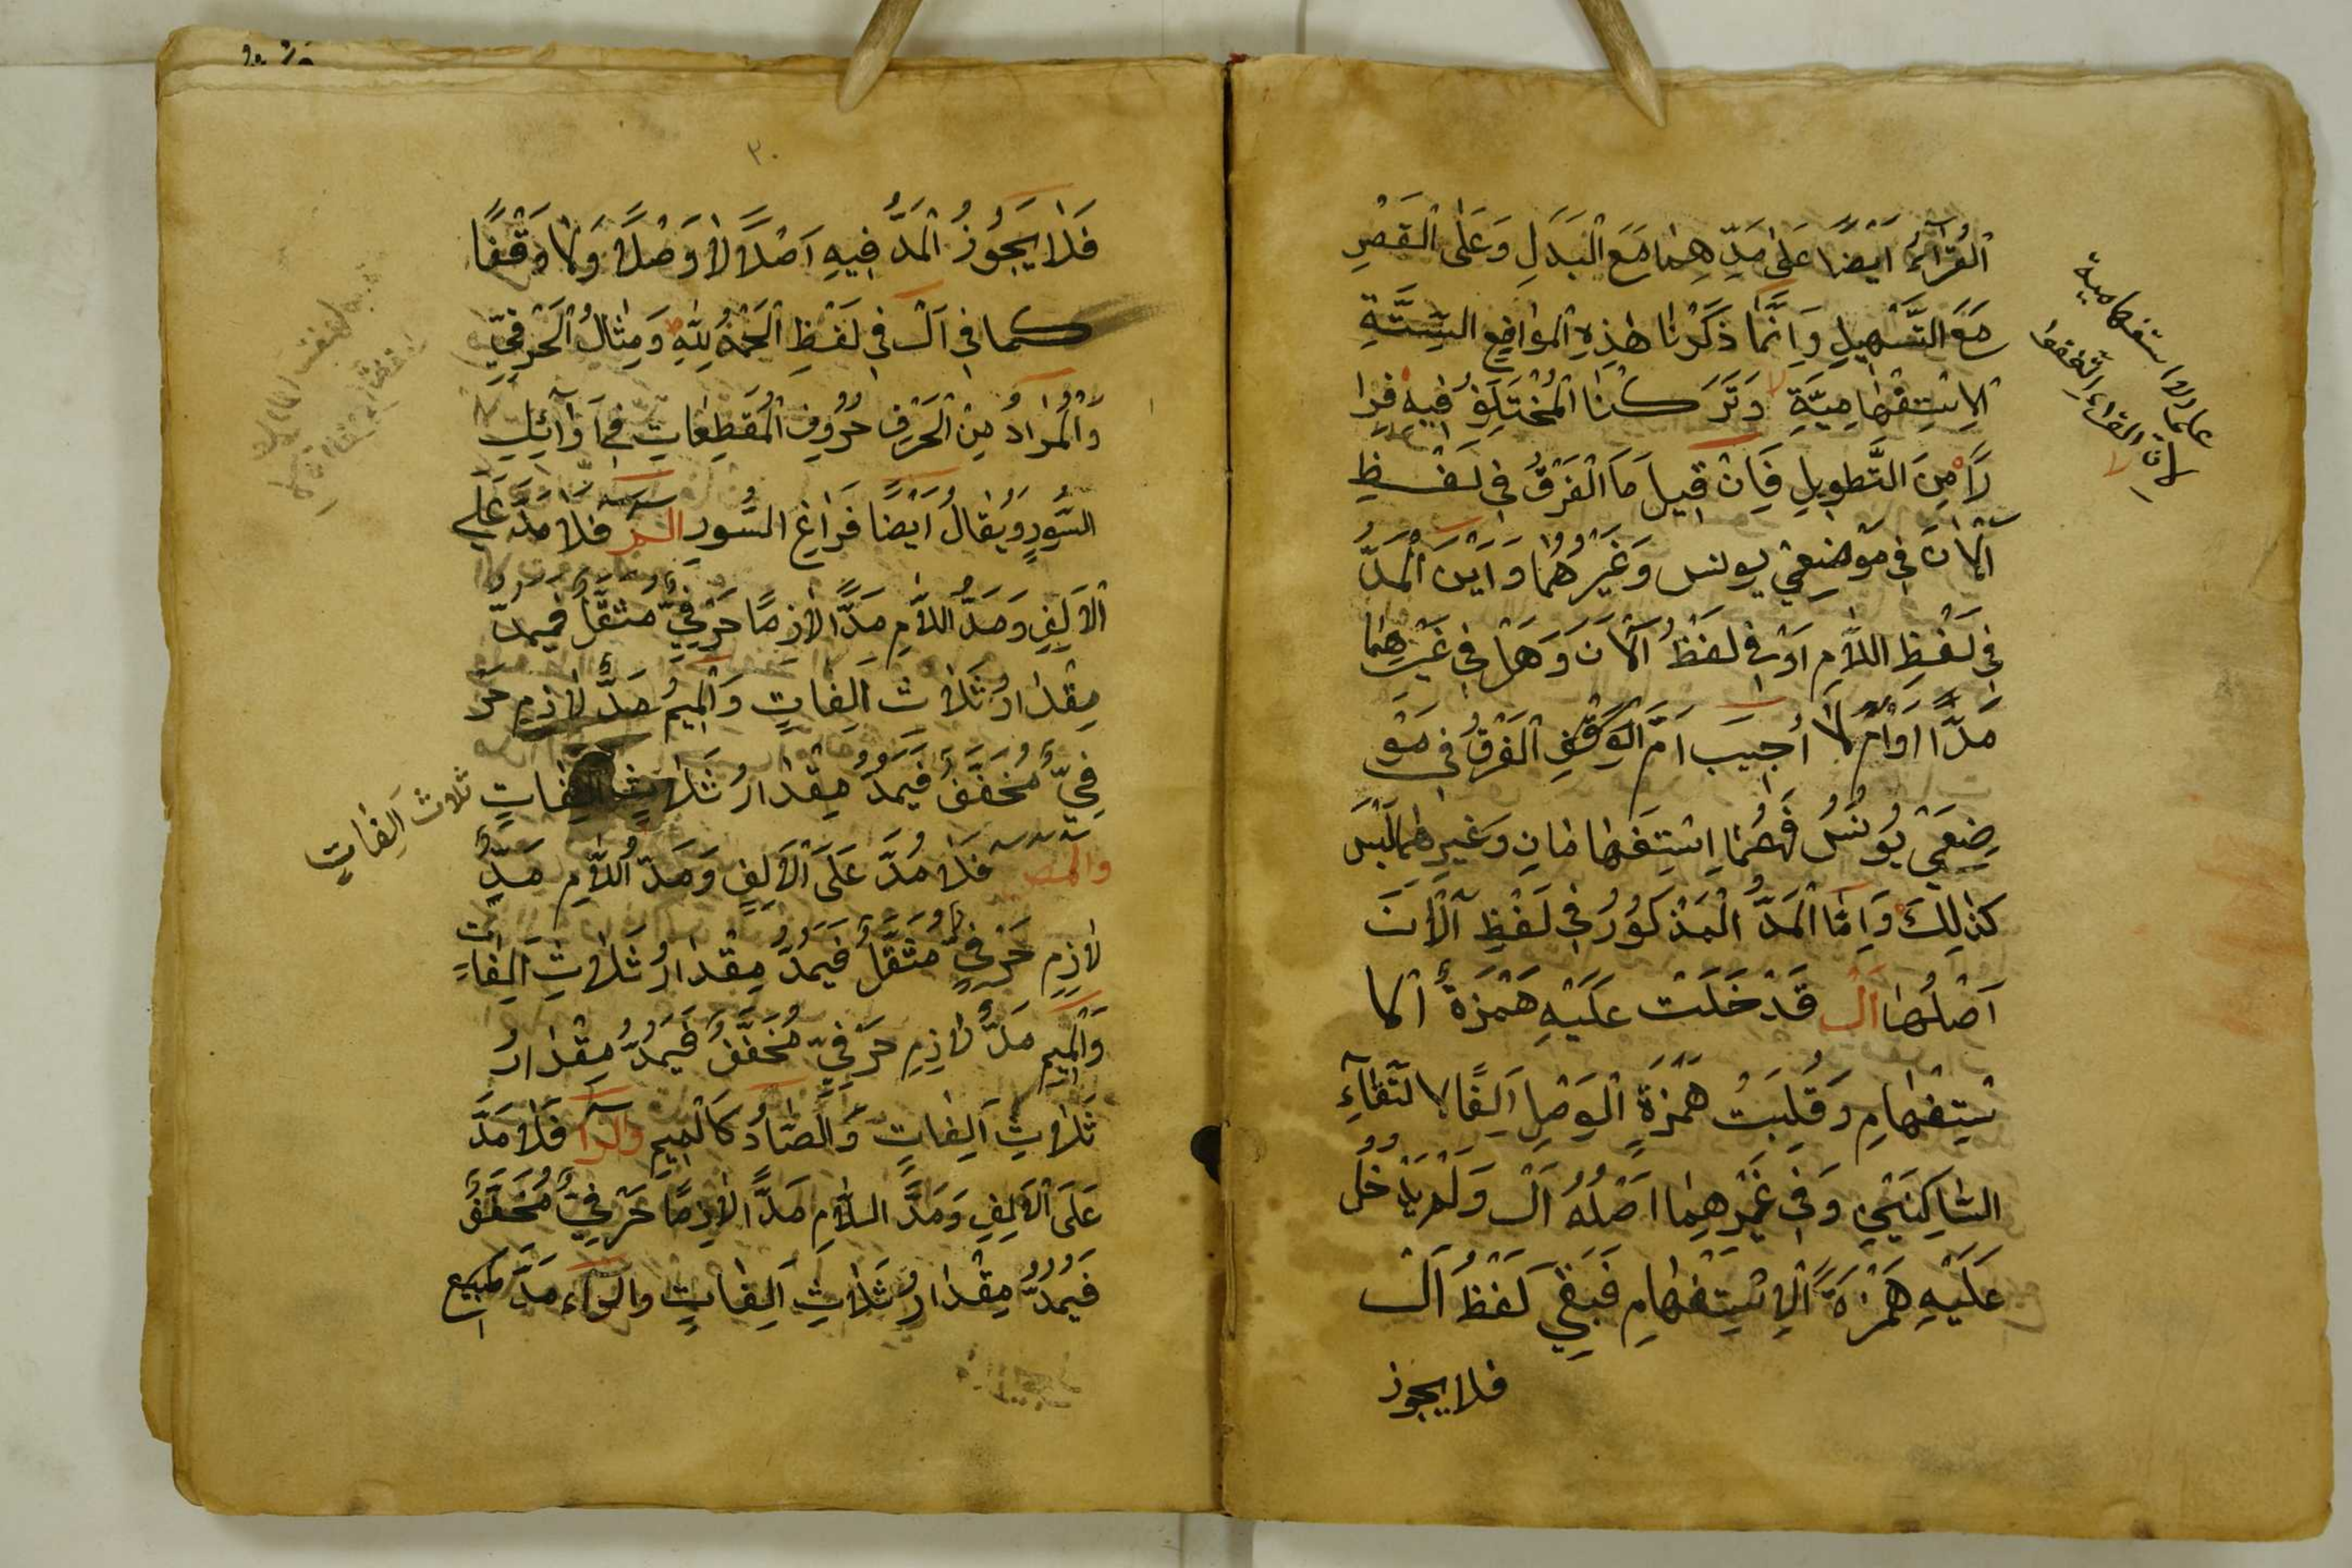 اَلْقُرَّآءُ اَيْضًا عَلٰى مَدِّهِمَا مَعَ الْبَدَلِ وَعَلَى الْقَصْرِ
مَعَ التَّسْهِيلِ وَاِنَّمَا ذَكَرْنَا هٰذِهِ الْمَوَاضِعِ السِّتَّةِ
الاِسْتِفْهَامِيَّةِ وَتَرَكْنَا الْمُخْتَلَفُ فِيهِ فِرَا
رًا مِنَ التَّطْوِيلِ فَاِنْ قِيلَ مَا الْفَرْقُ فِى لَفْظِ
آلْاٰنَ فِى مَوْضِعَيْ يونس وَغَيْرِهُمَا وَاَيْنَ الْمَدُّ
فِى لَفْظِ اللَّامِ اَوْ فِى لَفْظُ آلْاٰنَ وَهَلْ فِى غَيْرِهِمَا
مَدًّا اَوَامْ لَا اُجِيبَ اَمَّ الْفَرْقُ فِى مَوْ
ضِعَيْ يُونُسُ فَهُمَا اِسْتِفْهَامَانِ وَغَيْرِهُمَا لَيْسَ
كَذٰلِكَ وَاَمَّا الْمَدُّ الْمَذْكُورُ فِى لَفْظِ آلْاٰنَ
اَصْلُهَا اَلْ قَدْ خَلَتْ عَلَيْهِ هَمْزَةُ الا
سْتِفْهَامِ وَقُلِبَتْ هَمْزَةِ الْوَصْلِ اَلِفًا لالْتِقَآءِ
السَّاكِنَيْنِ وَفِى غَيْرِهِمَا اَصْلُهُ اَلْ وَلَمْ يَدْخُلْ
عَلَيْهِ هَمْزَةَ الْاِسْتِفْهَامِ فَبَقِيَ لَفْظُ اَلْ
فلا يجوز
علما الاستفهامية
لان القراء اتفقوا
٣٠
فَلَا يَجُوزُ الْمَدُّ فِيهِ اَصْلًا لَا وَصْلًا وَلَا وَقْفًا
كما فى اَلْ فى لَفْظِ الْحَمْدُ لِلّٰهِ وَمِثَالُ الْحَرْفِيِّ
وَالْمُرَادُ مِنَ الْحَرْفِ حُرُوفِ الْمُقَطِعَاتِ فِى اَوَآئِلِ
السُّوَرِ وَيُقَالُ اَيْضًا فَرَاغِ السُّوَرِ الٓمٓ فَلَا مَدَّ عَلَى
الْاَلِفِ وَمَدُّ اللَّامِ مَدًّا لَازِمًا حَرْفِيٌّ مُثَقَّلٌ فَيُمَدُّ
مِقْدَارُ ثَلَاثَ اَلِفَاتٍ وَالْمِيمُ مَدٌّ لَازِمِ حَرْ
فِيٌّ مُخَفَّفٌ فَيُمَدُّ مِقْدَارُ ثَلَاثِ اَلِفَاتٍ
ثلاث اَلِفَاتٍ
والٓمٓصٓ فَلَا مَدَّ عَلَى الْاَلِفِ وَمَدُّ اللَّامِ مَدٌّ
لَازِمِ حَرْفِيٌّ مُثَقَّلٌ فَيُمَدُّ مِقْدَارُ ثَلَاثِ اَلِفَاتٍ
وَالْمِيمِ مَدٌّ لَازِمِ حَرْفِيٌّ مُخَفَّفٌ فَيُمَدُّ مِقْدَارُ
ثَلَاثِ اَلِفَاتٍ وَالصَّادُ كَالْمِيمِ وَالٓرٰ فَلَا مَدَّ
عَلَى الْاَلِفِ وَمَدَّ اللَّامِ مَدًّا لَازِمًا حَرْفِيٌّ مُخَفَّفٌ
فَيُمَدُّ مِقْدَارُ ثَلَاثِ اَلِفَاتٍ وَالرَّاءُ مَدّ طَبِيعِ